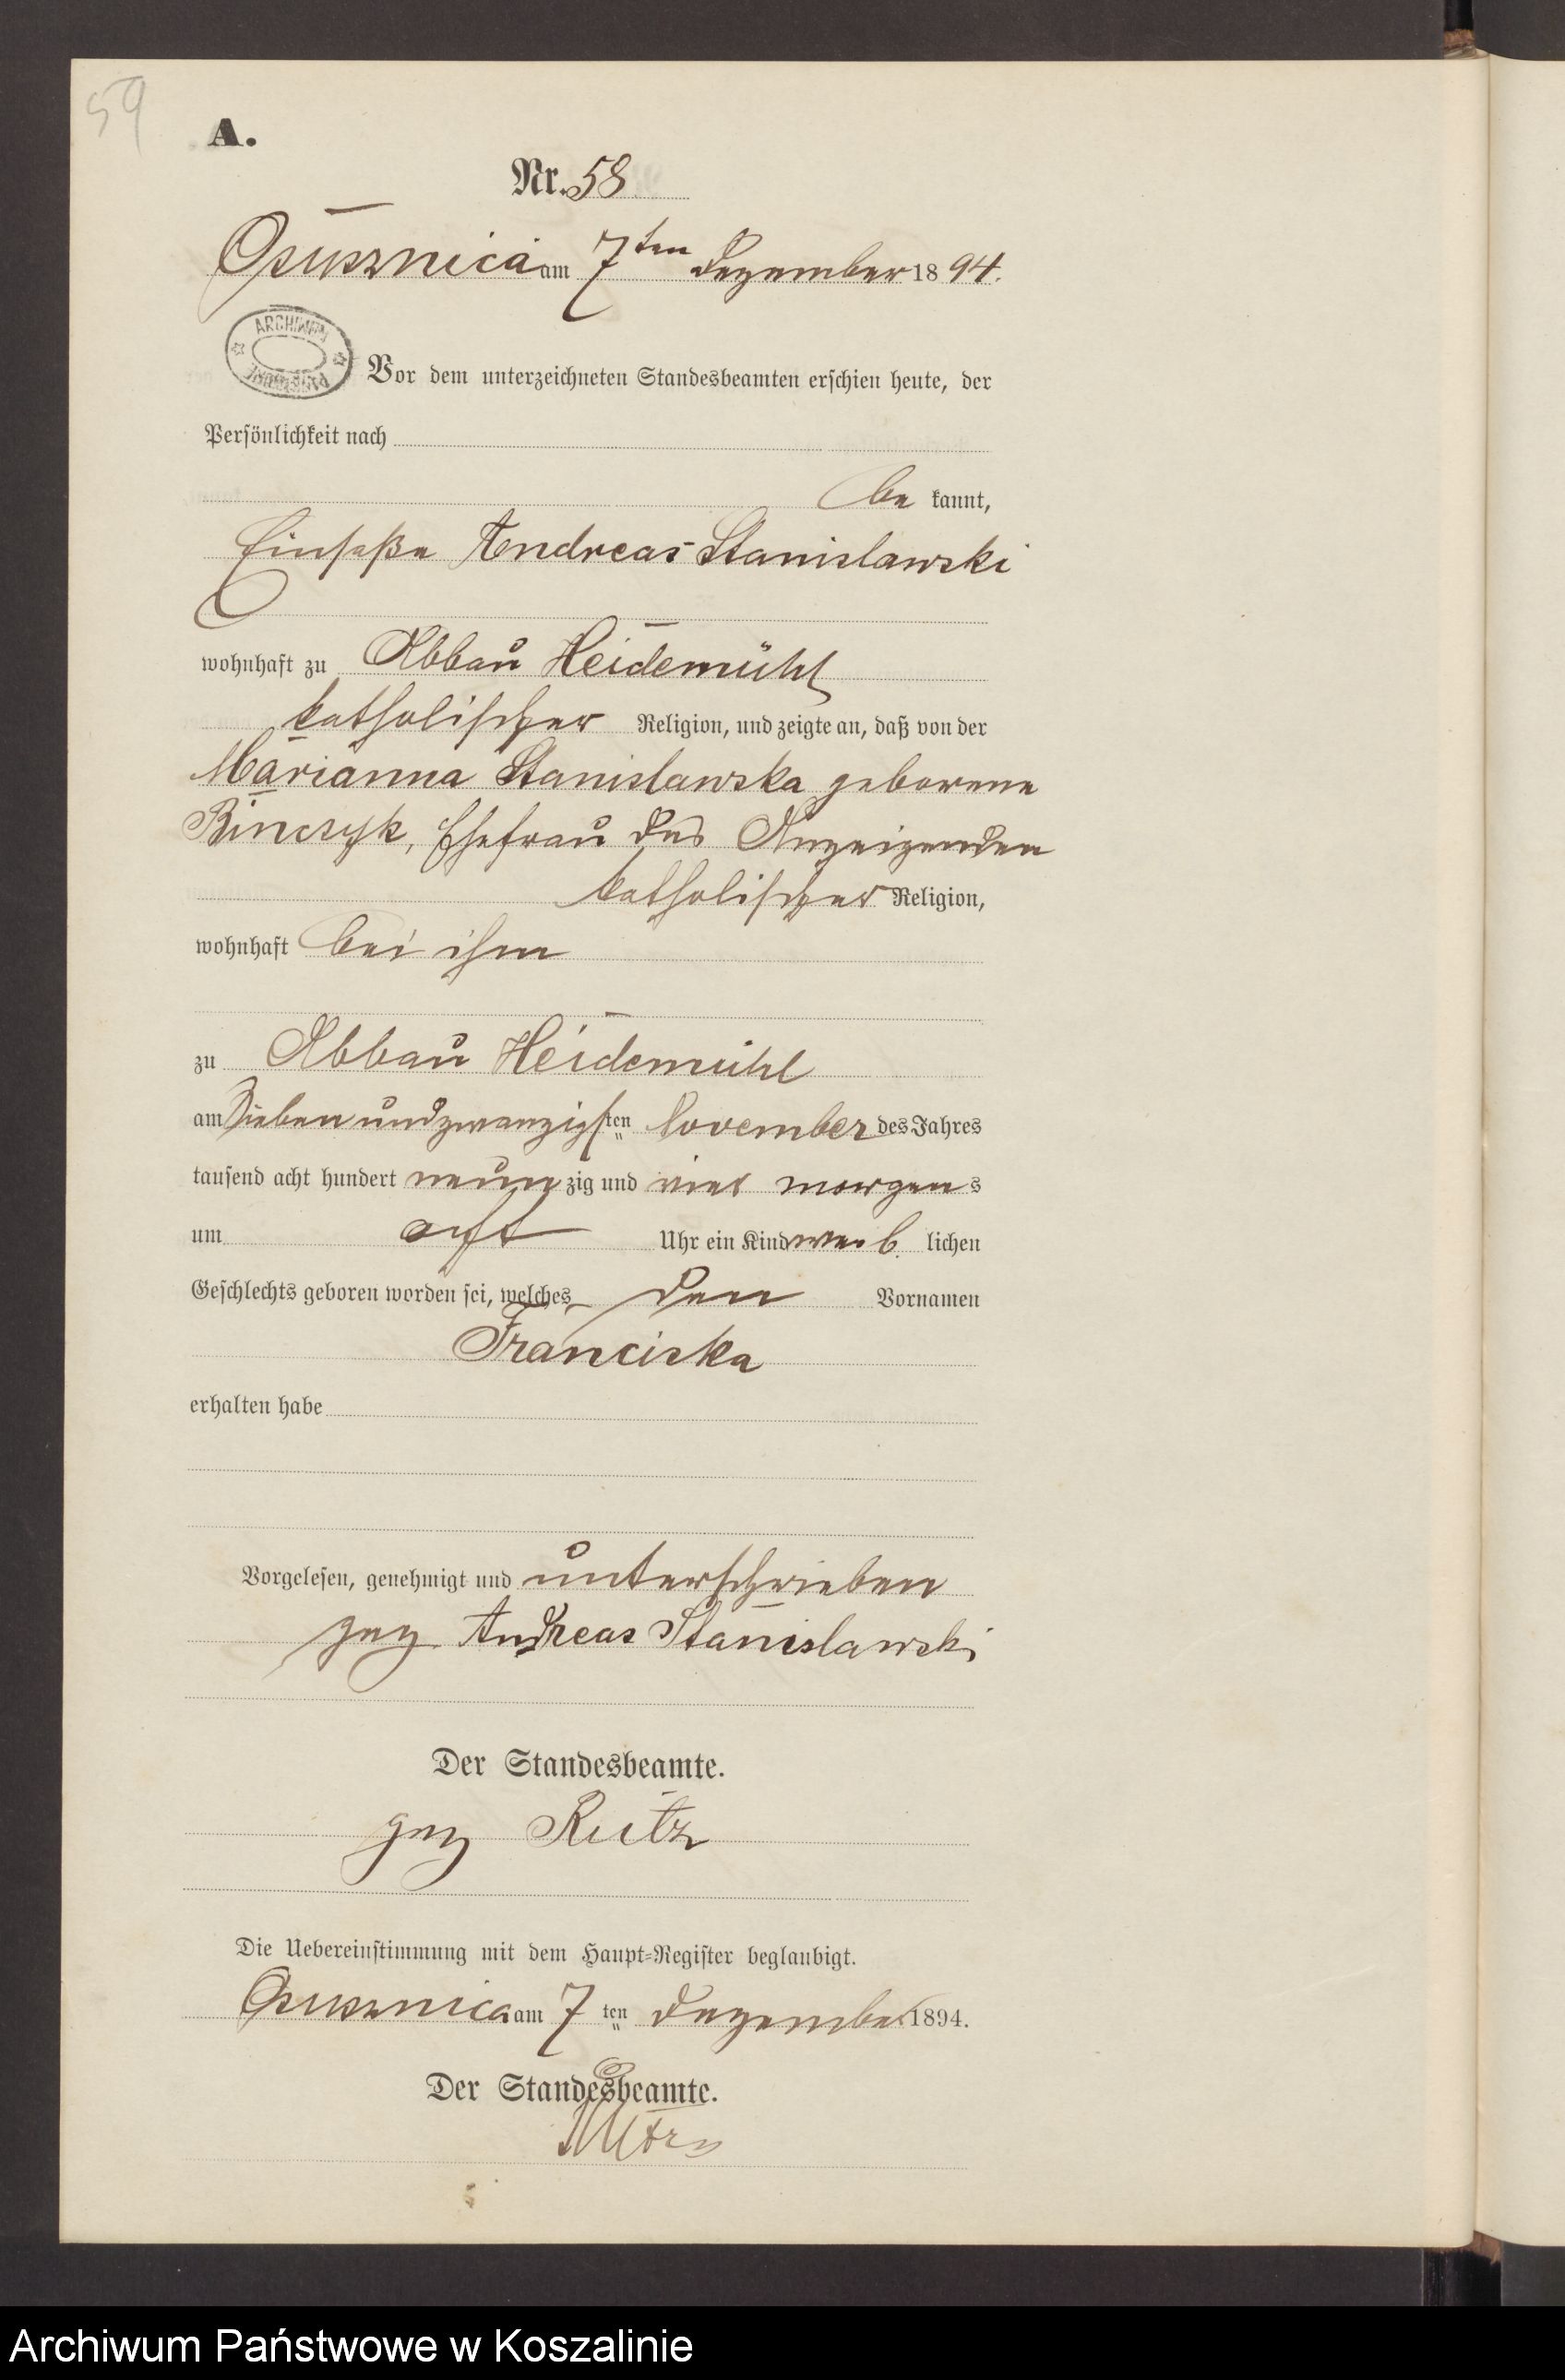 59
A.
Nr. 58
Osusznica am 7ten Dezember 1894.
ARCHIWUM
Vor dem unterzeichneten Standesbeamten erschien heute, der
Persönlichkeit nach
be kannt,
Einsaße Andreas Stanislawski
wohnhaft zu Abbau Heidemühl
katholischer Religion, und zeigte an, daß von der
Marianna Stanislawska geborene
Binczyk, Ehefrau des Anzeigenden
katholischer Religion,
wohnhaft bei ihm
zu Abbau Heidemühl
am Sieben und zwanzigsten November des Jahres
tausend acht hundert neun zig und vier morgens
um acht Uhr ein Kind weib lichen
Geschlechts geboren worden sei, welches den Vornamen
Franciska
erhalten habe
Vorgelesen, genehmigt und unterschrieben
gez Andreas Stanislawski
Der Standesbeamte.
gez
Die Uebereinstimmung mit dem Haupt-Register beglaubigt.
Osusznica am 7 ten Dezember 1894.
Der Standesbeamte.
Archiwum Państwowe w Koszalinie